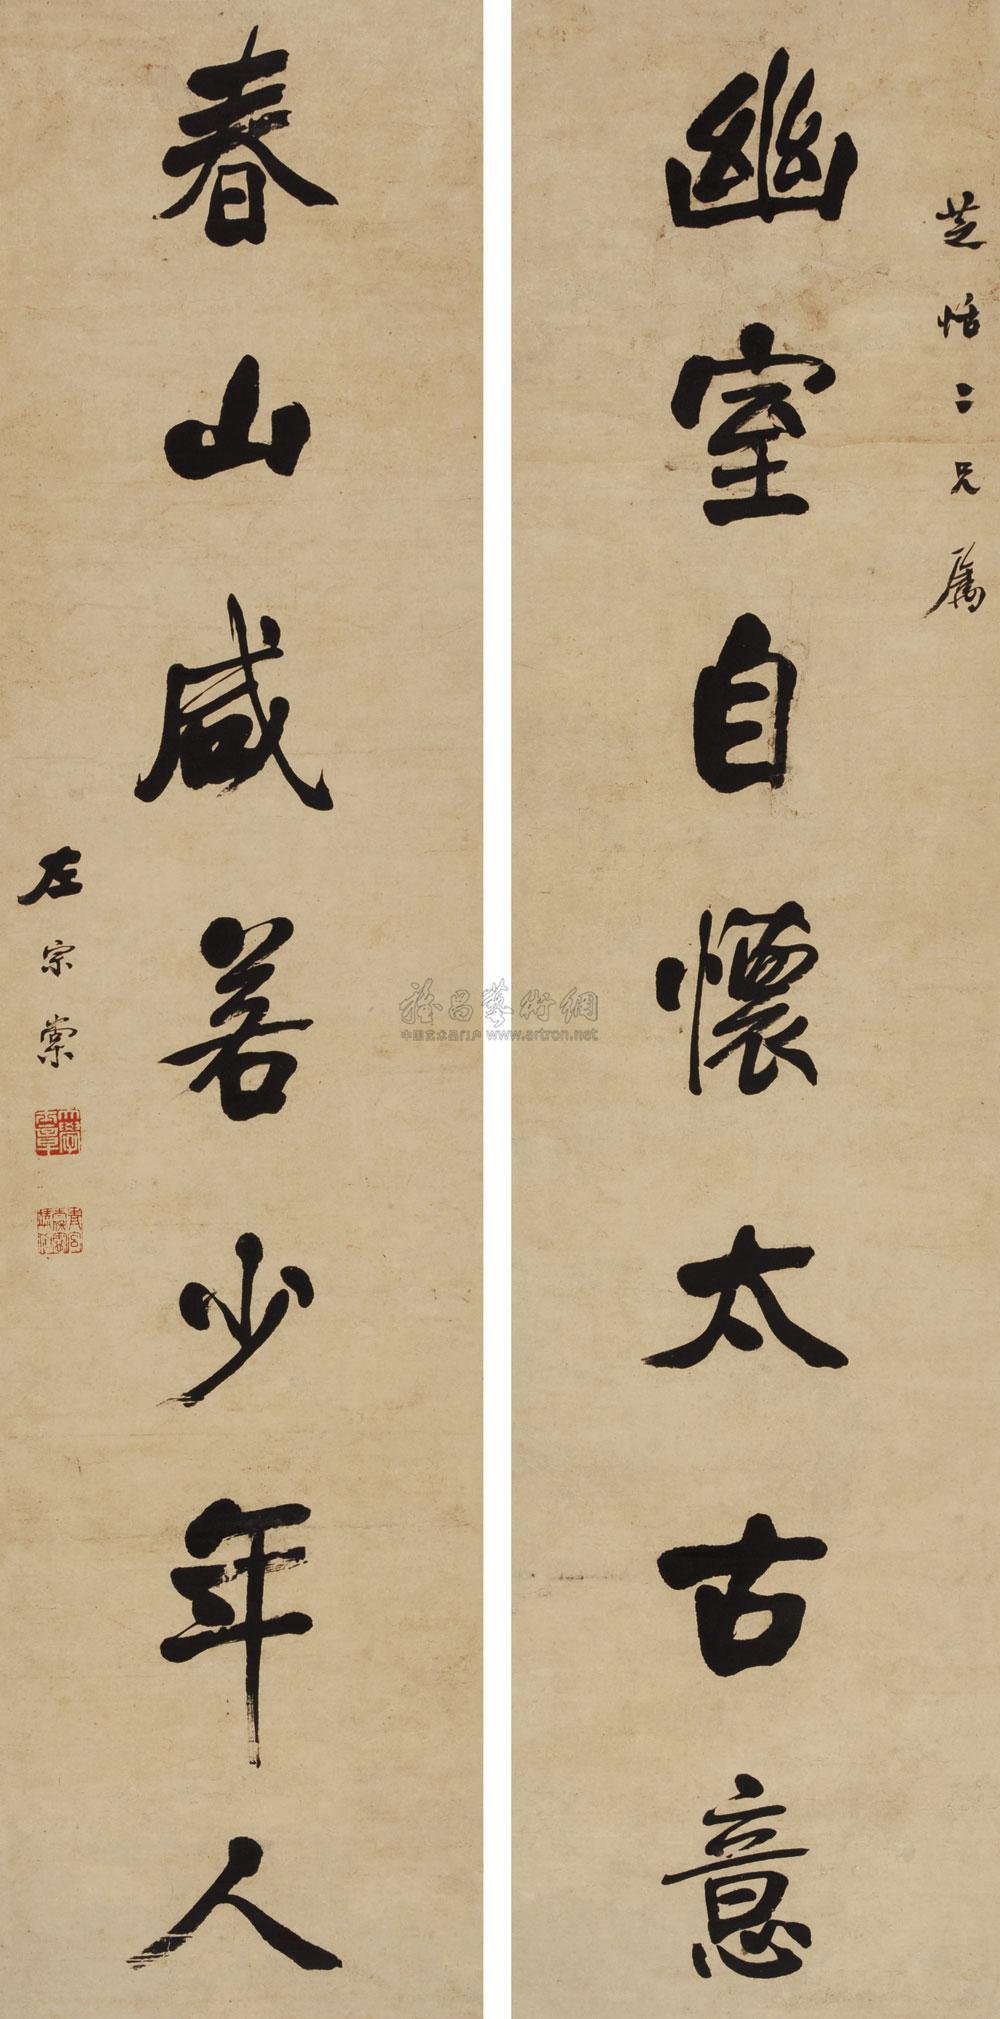 芝恬二兄属
幽室自懷太古意
春山咸若少年人
左宗棠
雅昌藝術網
中国艺术品门户 www.artron.net